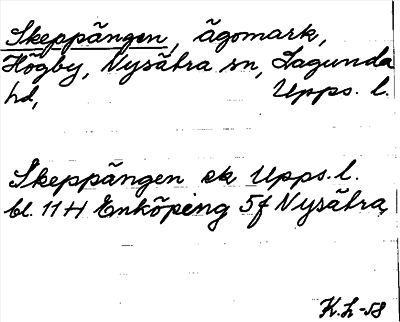 Skeppängen, ägomark,
Högby, Nysätra sn, Lagunda
hd, Upps. l.
Skeppängen ek Upps. l.
bl. 11 H Enköping 5f Nysätra,
K.H-58